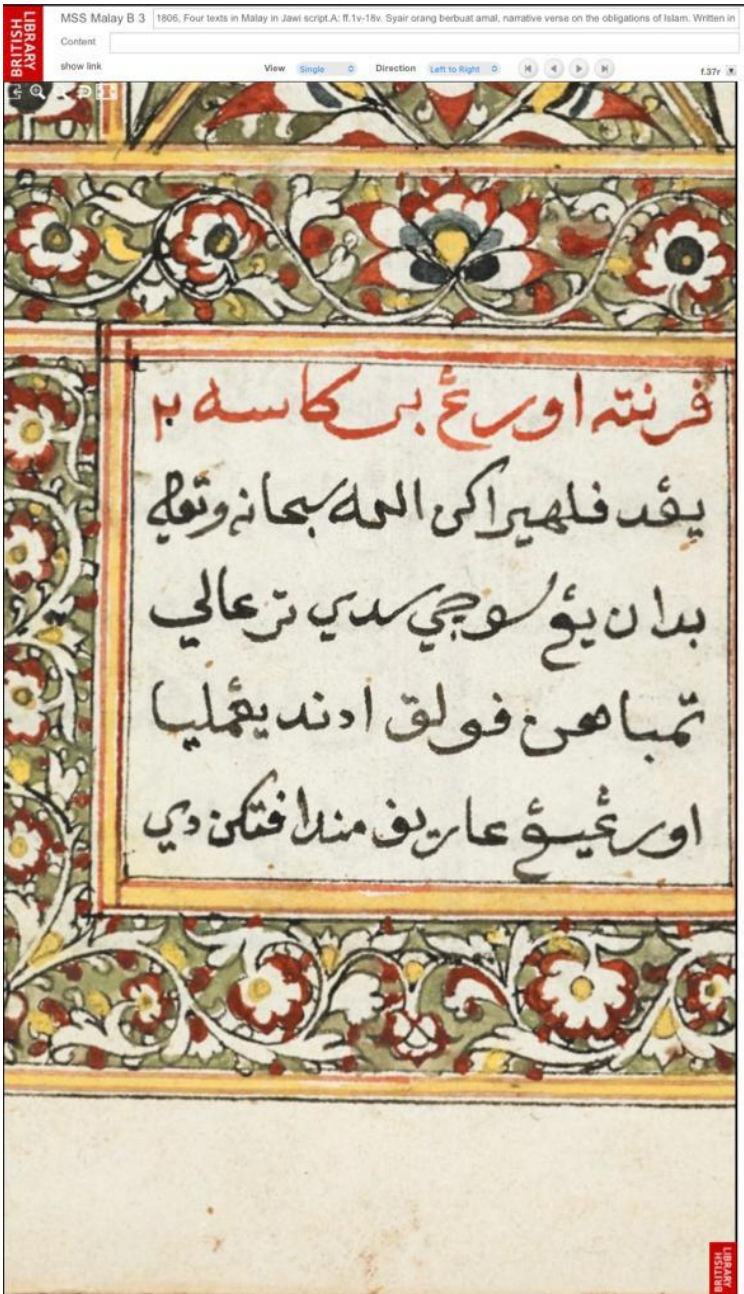 BRITISH LIBRARY
MSS Malay B 3
1806, Four texts in Malay in Jawi script.A: ff.1v-18v. Syair orang berbuat amal, narrative verse on the obligations of Islam. Written in
Content
show link View Single Direction Left to Right f.37r
فرنته اورڠ بركاسه ٢
يڠد فلهيراكن الله سبحانه وتعالى
بدان يڠ سوچي سدي ترعالي
تمباهن فولق ادند يڠمليا
اورڠيڠ عاريف مندافتكن دي
BRITISH LIBRARY